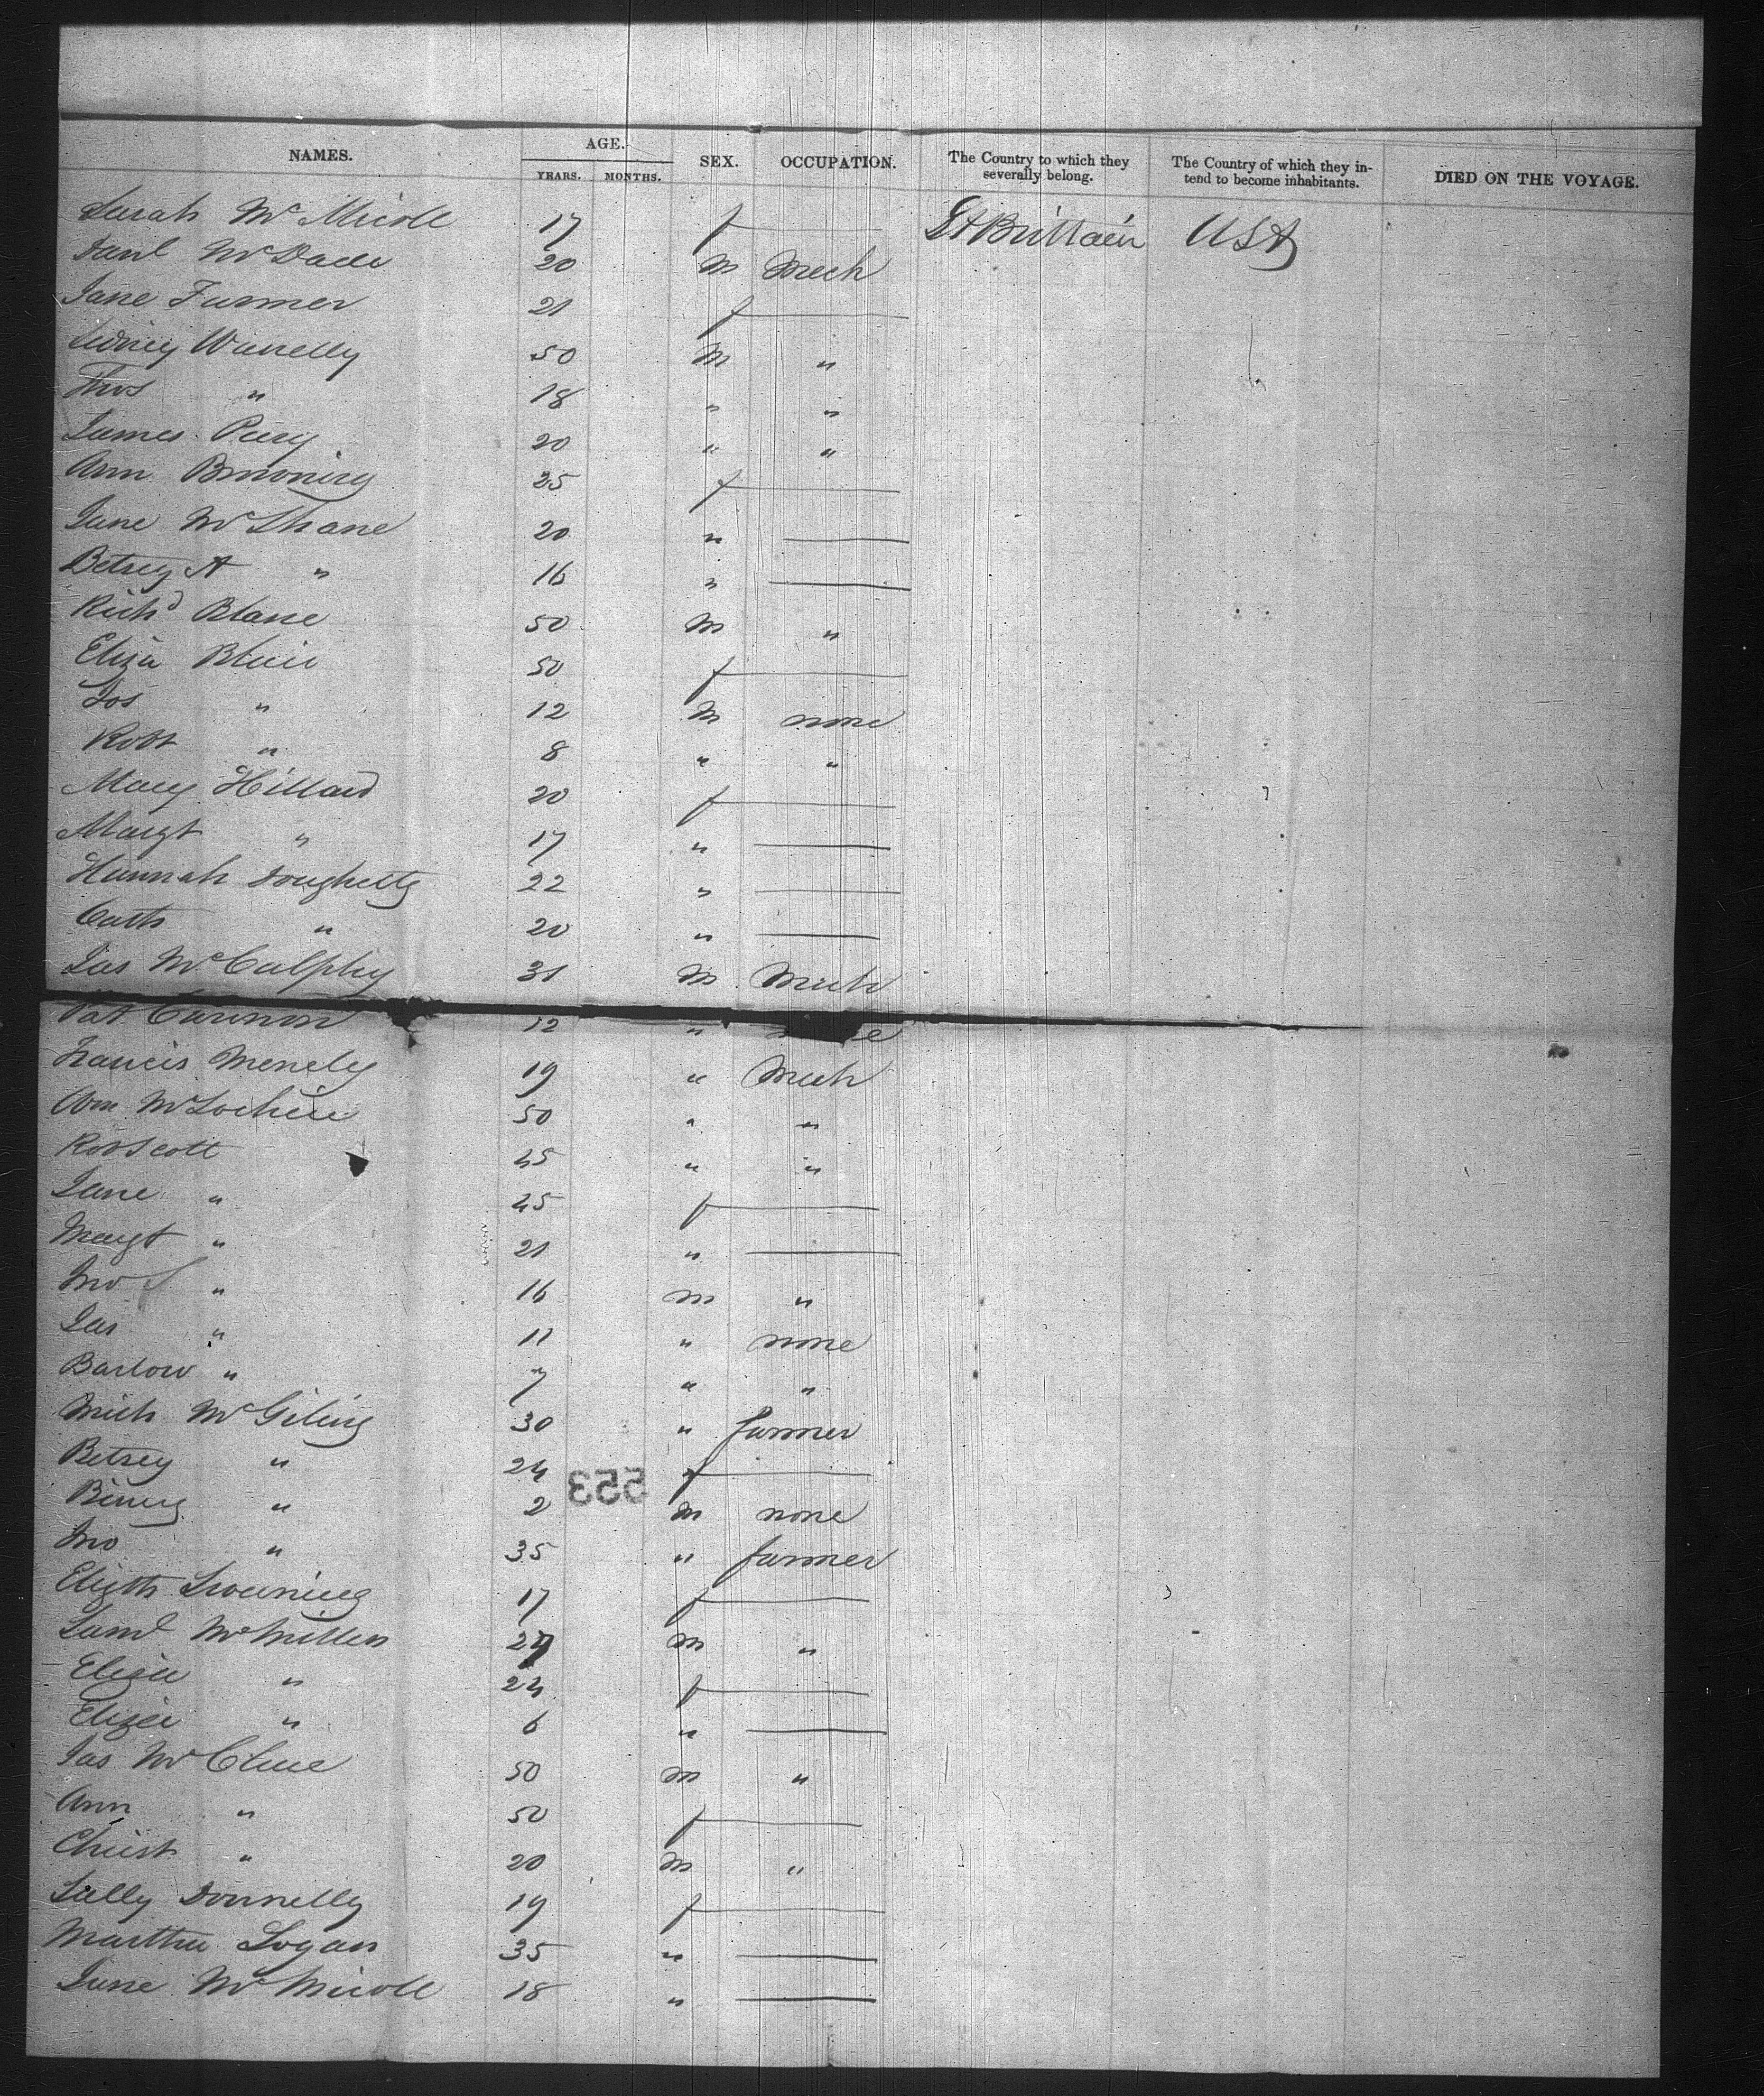 NAMES. AGE. YEARS. MONTHS. SEX. OCCUPATION. The Country to which they severally belong. The Country of which they intend to become inhabitants. DIED ON THE VOYAGE.
Sarah McNicoll 17 f Gt Brittain USA
Danl McDade 20 M Mech
Jane Farmer 21 f
Sidney Warrelly 50 M "
Thos " 18 " "
James Perry 20 " "
Ann Browning 25 f
Jane McShane 20 "
Betsey A " 16 "
Richd Blane 50 M "
Eliza Blair 50 f
Jos " 12 M none
Robt " 8 " "
Mary Hillard 20 f
Margt " 17 "
Hannah Dougherty 22 "
Cath " 20 "
Jas McCalphy 31 M Mech
Pat Cannon 12 "
Francis Menely 19 " Mech
50 " "
Rob Scott 45 " "
Jane " 45 f
Margt " 21 "
Jno S " 16 M "
Jas " 11 " none
Barlow " 7 " "
Mich 30 " farmer
Betsey " 24 f
553
" 2 M none
Jno " 35 " farmer
Elizth 17 f
Saml McMillen M "
Eliza " 24 f
Eliza " 6 "
Jas McClue 50 M "
Ann " 50 f
Christ " 20 M "
Sally Donnelly 19 f
Martha Logan 35 "
Jane McNicoll 18 "